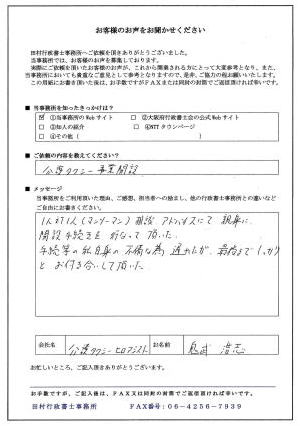 お客様のお声をお聞かせください
田村行政書士事務所へご依頼を頂きありがとうございました。
当事務所では、お客様のお声を募集しております。
実際にご依頼頂いたお客様のお声が、これから開業される方にとって大変参考となり、また、
当事務所においても貴重なご意見として参考となりますので、是非、ご協力の程お願いいたします。
この用紙にお書き頂いた後は、お手数ですがFAXまたは同封の封筒でご返信頂ければ幸いです。
■ 当事務所を知ったきっかけは？
①当事務所のWebサイト □②大阪府行政書士会の公式Webサイト
□③知人の紹介 □④NTTタウンページ
□④その他（ ）
■ ご依頼の内容を教えてください？
介護タクシー事業開設
■ メッセージ
当事務所をご利用頂いた理由、ご感想、担当者への励まし、他の行政書士事務所との違いなど
ご自由にお書きください。
1人対1人(マンツーマン) 相談 アドバイスにて 親身に
開設手続きを 行なって頂いた.
手続等の私自身の不備な為 遅れたが 最后まで しっかり
と お付き合いして頂いた.
会社名 介護タクシーヒロアシスト お名前 鬼武 浩志
お忙しいところ、ご記入頂きありがとうございます。
お手数ですが、ご記入後は、FAX又は同封の封筒でご返信頂ければ幸いです。
田村行政書士事務所 FAX番号：06-4256-7939